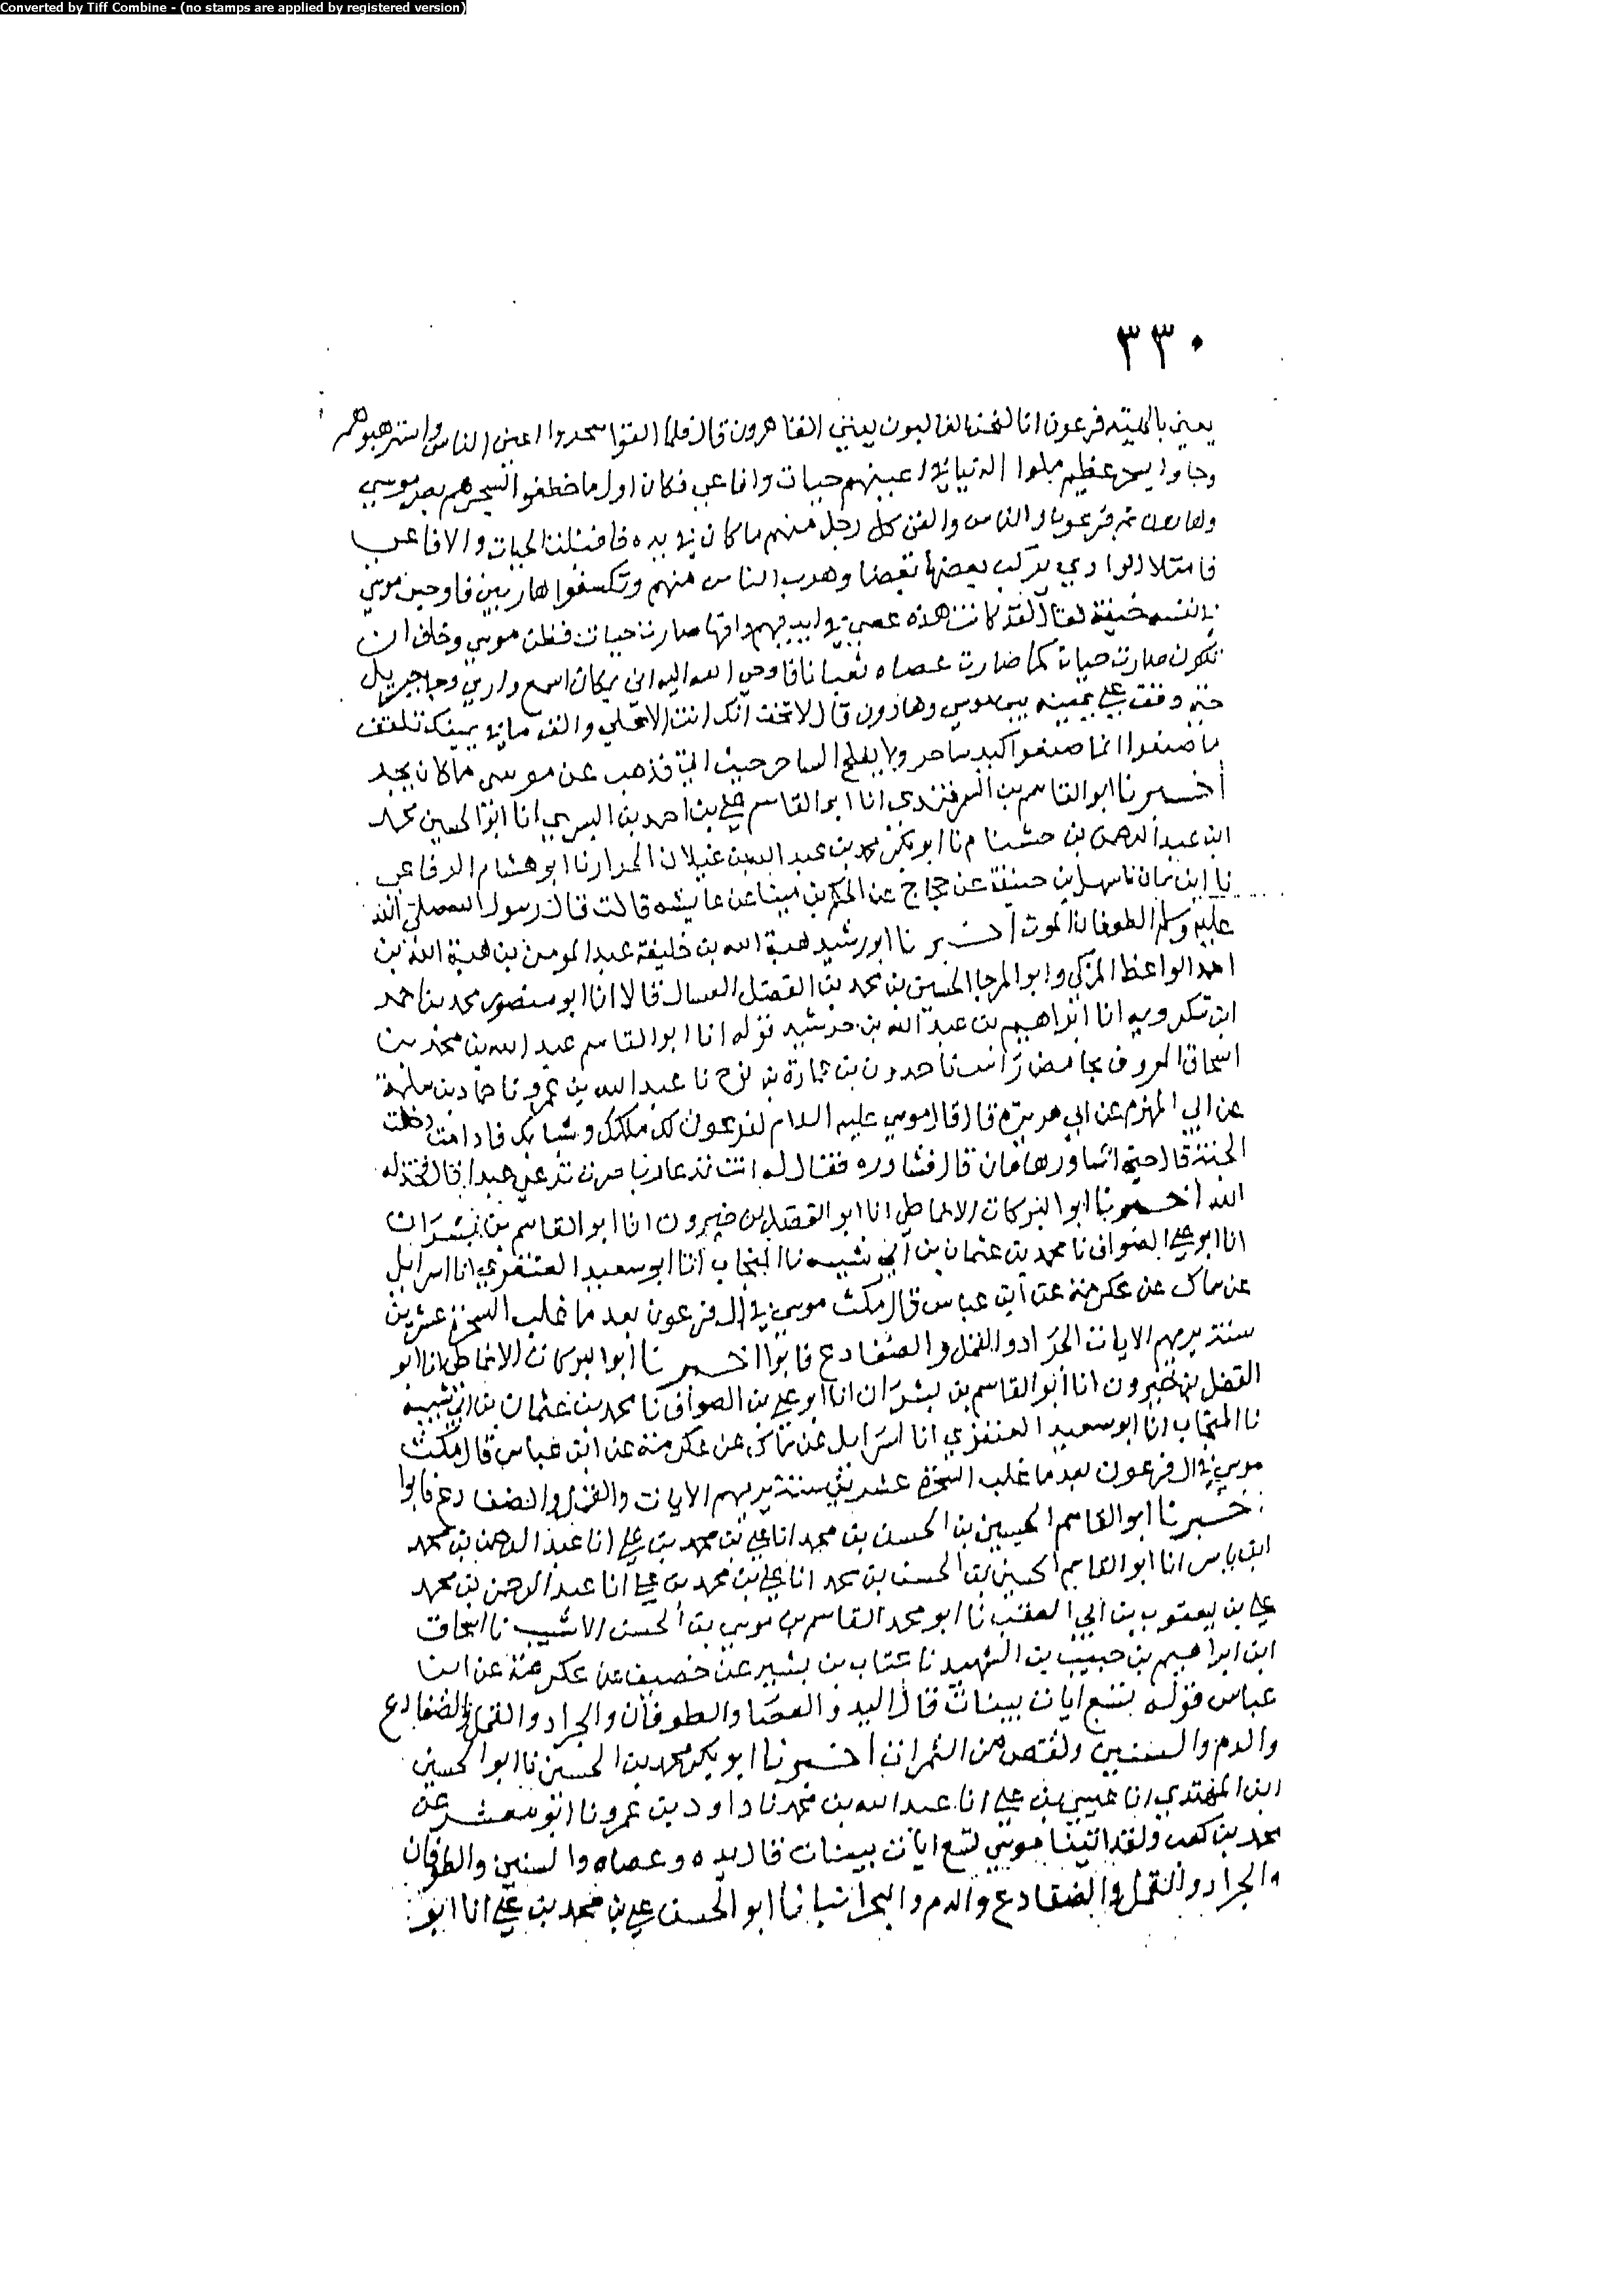 Converted by Tiff Combine - (no stamps are applied by registered version)
٣٣٠
يعني بالهيته فرعون انا لنحن الغالبون يعني القاهرون قال فلما القوا سحروا اعين الناس واسترهبوهم
وجاوا بسحر عظيم ملوا الدنيا في اعينهم حيات وافاعي فكان اول ما خطفوا بسحرهم بصر موسي
ثم فرعون والناس والقي كل رجل منهم ما كان في يده فاقبلت الحيات والافاعي
فامتلا الوادي يركب بعضها بعضا وهرب الناس منهم وتكسفوا هاربين فاوجس موسي
في نفسه خيفة فقال لقد كانت هذه عصي في ايديهم وانها صارت حيات فظن موسي وخاف ان
تكون صارت حيات كما صارت عصاه ثعبانا فاوحي الله اليه اني بمكان اسمع واري وجا جبريل
حتي وقف علي يمينه بين موسي وهارون قال لا تخف انك انت الاعلي والق ما في يمينك تلقف
ما صنعوا انما صنعوا كيد ساحر ولا يفلح الساحر حيث اتي فذهب عن موسي ما كان يجد
أخبرنا ابو القاسم بن السمرقندي انا ابو القاسم علي بن احمد بن البسري انا ابو الحسين محمد
ابن عبد الرحمن بن حشنام نا ابو بكر محمد بن عبد الله بن غيلان الخزاز نا ابو هشام الرفاعي
نا ابن يمان نا سهل بن حنيفة عن حجاج عن الحكم بن مينا عن عايشه قالت قال رسول الله صلي الله
عليه وسلم الطوفان الموت أخبرنا ابو رشيد هبة الله بن خليفة عبد المومن بن هبة الله بن
احمد الواعظ المزكي وابو المرجا الحسين بن محمد بن الفضل العسال قالا انا ابو منصور محمد بن احمد
ابن شكرويه انا ابراهيم بن عبد الله بن خرشيد قوله انا ابو القاسم عبد الله بن محمد بن
اسحاق المعروف بحامض راسه نا حمدون بن عمارة بن نوح نا عبد الله بن عمرو نا حماد بن سلمة
عن ابي المهزم عن ابي هريرة قال قال موسي عليه السلام لفرعون لك ملكك وشبابك فاذا مت دخلت
الجنة قال حتي اشاور هامان قال فشاوره فقال له انت تدعا ربا صرت تدعي عبدا قال فخذله
الله أخبرنا ابو البركات الانماطي انا ابو الفضل بن خيرون انا ابو القاسم بن بشران
انا ابو علي الصواف نا محمد بن عثمان بن ابي شيبه نا المنجاب انا ابو سعيد العنقزي انا اسرايل
عن سماك عن عكرمة عن ابن عباس قال مكث موسي في ال فرعون بعد ما غلب السحرة عشرين
سنة يريهم الايات الجراد والقمل والضفادع فابوا أخبرنا ابو البركات الانماطي انا ابو
الفضل بن خيرون انا ابو القاسم بن بشران انا ابو علي بن الصواف نا محمد بن عثمان بن ابي شيبة
نا المنجاب انا ابو سعيد العنقزي انا اسرايل عن سماك عن عكرمة عن ابن عباس قال مكث
موسي في ال فرعون بعد ما غلب السحرة عشرين سنة يريهم الايات والقمل والضفادع فابوا
أخبرنا ابو القاسم الحسين بن الحسن بن محمد انا علي بن محمد بن علي انا عبد الرحمن بن محمد
ابن ياسر انا ابو القاسم الحسين بن الحسن بن محمد انا علي بن محمد بن علي انا عبد الرحمن بن محمد
علي بن يعقوب بن ابي العقب نا ابو محمد القاسم بن موسي بن الحسن الاشيب نا اسحاق
ابن ابراهيم بن حبيب بن الشهيد نا عتاب بن بشير عن خصيف عن عكرمة عن ابن
عباس قوله بتسع ايات بينات قال اليد والعصا والطوفان والجراد والقمل والضفادع
والدم والسنين ونقص من الثمرات أخبرنا ابو بكر محمد بن الحسين نا ابو الحسين
ابن المهتدي انا عيسي بن علي انا عبد الله بن محمد نا داود بن عمرو نا ابو معشر عن
محمد بن كعب ولقد اتينا موسي تسع ايات بينات قال يده وعصاه والسنين والطوفان
والجراد والقمل والضفادع والدم والبحر انبانا ابو الحسن علي بن محمد بن علي انا ابو